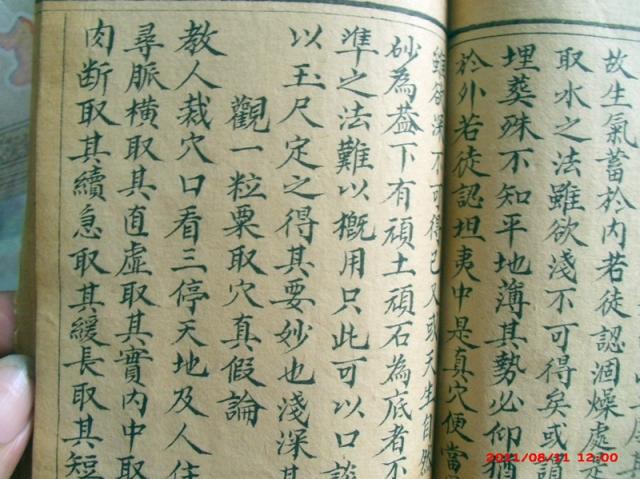 故生氣蓄於內若徒認涸燥處是
取水之法雖欲淺不可得矣或謂
埋葬殊不知平地薄其勢必仰猶
於外若徒認坦夷中是真穴便當
雖欲深不可得已又或天生自然
砂為蓋下有頑土頑石為底者不
準之法難以概用只此可以口談
以玉尺定之得其要妙也淺深其
觀一粒粟取穴真假論
教人裁穴口看三停天地及人住
尋脈橫取其直虛取其實內中取
肉斷取其續急取其緩長取其短
2011/08/11 12:00